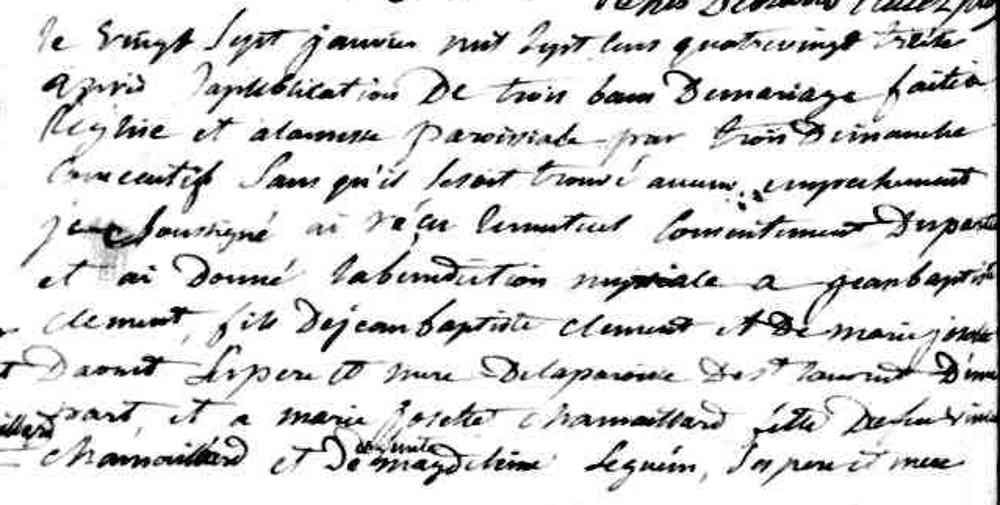 le vingt sept janvier mil sept cens quatrevingt treize
après la publication De trois bans Demariage faitte a
l'eglise et alamesse paroissiale par trois Dimanche
Consecutifs Sans qu'il Sesoit trouvé aucun empechement
je Soussigné ai reçu lemutuel Consentement Desparti
et ai Donné labenediction nuptiale a jeanbaptist
clement, fils Dejean baptiste clement et De marie josette
Daoust Sespere et mere Delaparoisse De St laurent D'une
part, et a marie Josette chamaillard fille Defeu
chamaillard et De magdeleine Seguin, Ses pere et mere